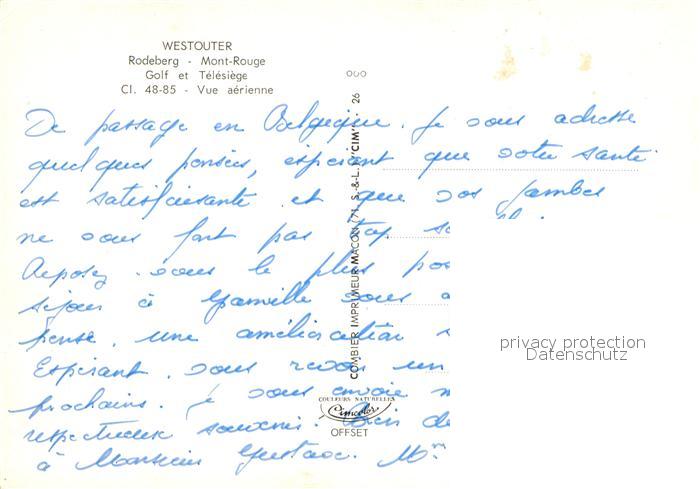 WESTOUTER
Rodeberg - Mont-Rouge
Golf et Télésiège
Cl. 48-85 - Vue aérienne
De passage en Belgique. Je vous adresse
quelques pensées, espérant que votre santé
est satisfaisante et que vos jambes
ne vous font pas trop
Reposez-vous le plus pos
séjour à vous a
pense, une amélioration
Espérant vous revoir un
prochains. je vous envoie
respectueux souvenir. Bien de
à Monsieur Gustave. Mme
COMBIER IMPRIMEUR MACON (71, S.-&-L.) "CIM" - 26
COULEURS NATURELLES
Cimcolor
OFFSET
privacy protection
Datenschutz